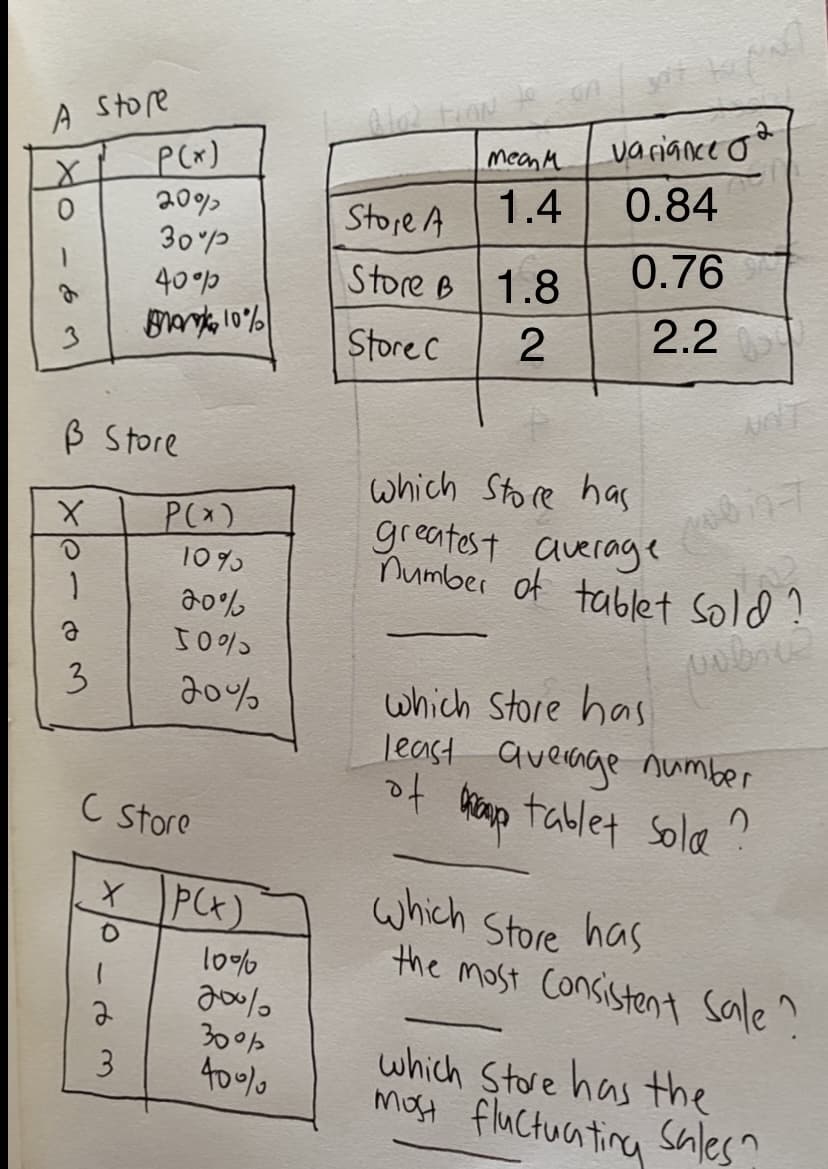 A Store
X P(x)
0 20%
1 30%
2 40%
3 10%
mean μ variance σ²
Store A 1.4 0.84
Store B 1.8 0.76
Store C 2 2.2
B Store
X P(x)
0 10%
1 20%
2 50%
3 20%
C Store
X P(x)
0 10%
1 20%
2 30%
3 40%
which Store has
greatest average
number of tablet sold?
which Store has
least average number
of tablet sold?
which Store has
the most consistent sale?
which Store has the
most fluctuating sales?